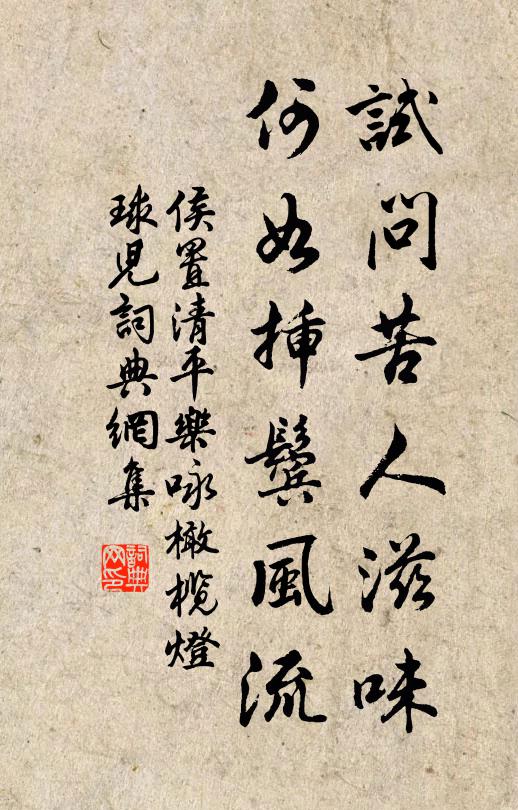 試問苦人滋味
何如揷鬢風流
侯置清平樂咏橄欖燈
球兒詞典網集
詞典网印